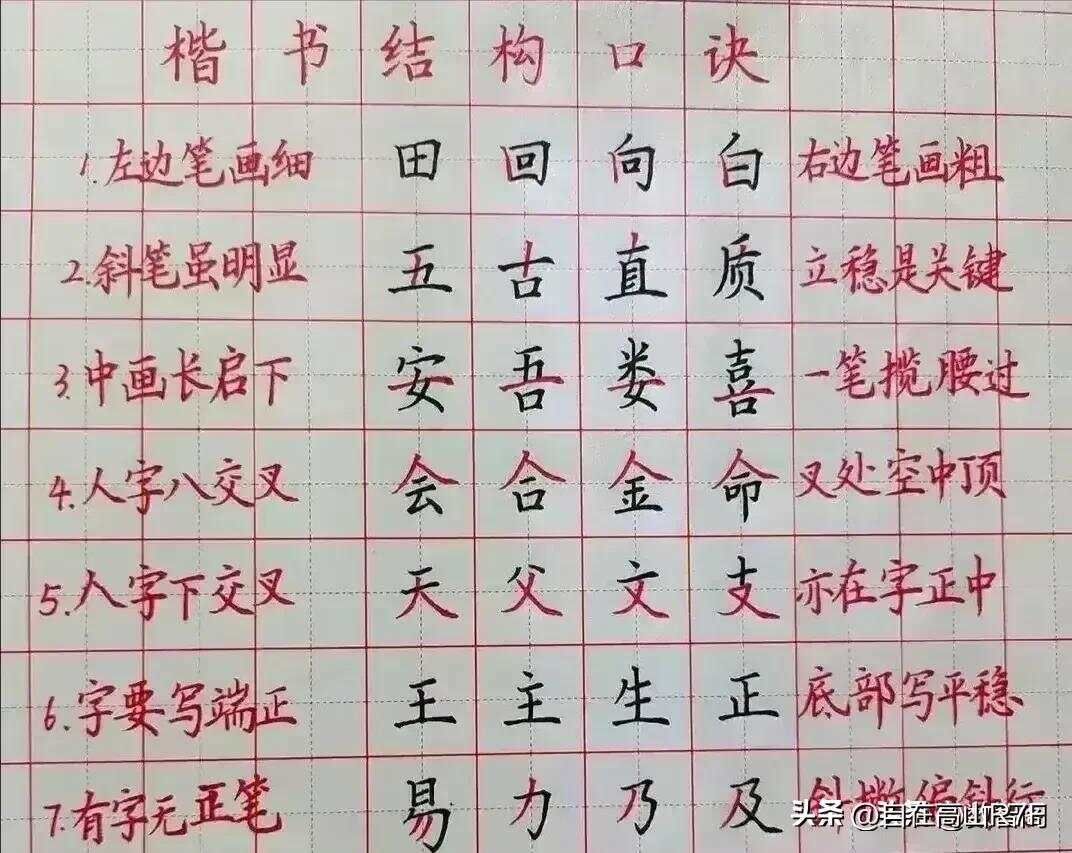 楷书结构口诀
1.左边笔画细 田 回 向 白 右边笔画粗
2.斜笔虽明显 五 古 直 质 立稳是关键
3.中画长启下 安 吾 娄 喜 一笔揽腰过
4.人字八交叉 会 合 金 命 叉处空中顶
5.人字下交叉 天 父 文 支 亦在字正中
6.字要写端正 王 主 生 正 底部写平稳
7.有字无正笔 易 力 乃 及 斜撇偏
头条